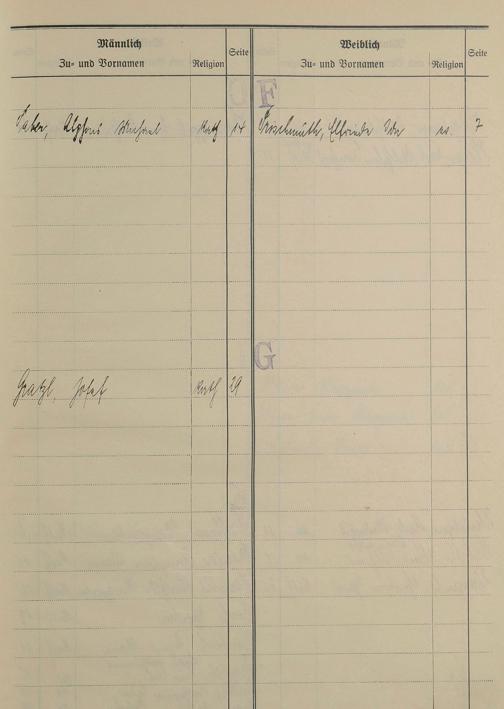 Männlich
Zu- und Vornamen
Religion
Seite
Weiblich
Zu- und Vornamen
Religion
Seite
F
Faber, Alphons Michael Kath 14
Froschmuth, Elfriede Ida ev. 7
G
Gratzl, Josef Kath 29